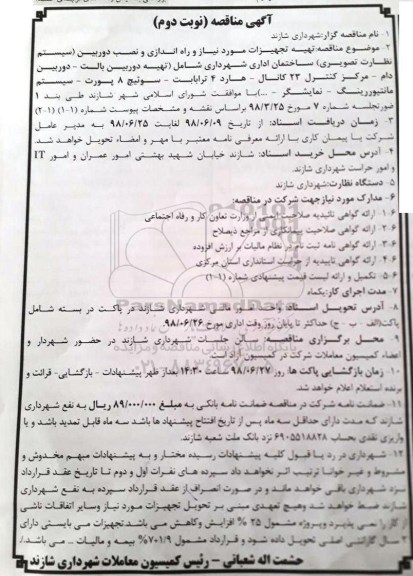 آگهی مناقصه (نوبت دوم)
۱- نام مناقصه گزار:شهرداری شازند
۲- موضوع مناقصه:تهیه تجهیزات مورد نیاز و راه اندازی و نصب دوربین (سیستم
نظارت تصویری) ساختمان اداری شهرداری شامل (تهیه دوربین بالت - دوربین
دام - مرکز کنترل ۲۳ کانال - هارد ۴ ترابایت - سوئیچ ۸ پورت - سیستم
مانیتورینگ - نمایشگر - ...)با موافقت شورای اسلامی شهر شازند طی بند ۱
صورتجلسه شماره ۷ مورخ ۹۸/۳/۲۵ براساس نقشه و مشخصات پیوست شماره (۱-۱) (۲-۱)
۳- زمان دریافت اسناد: از تاریخ ۹۸/۰۶/۰۹ لغایت ۹۸/۰۶/۲۵ به مدیر عامل
شرکت یا پیمان کاری با ارائه معرفی نامه معتبر با مهر و امضاء تحویل خواهد شد.
۴- آدرس محل خرید اسناد: شازند خیابان شهید بهشتی امور عمران و امور IT
و امور حراست شهرداری شازند.
۵- دستگاه نظارت:شهرداری شازند
۶- مدارک مورد نیاز جهت شرکت در مناقصه:
۶-۱- ارائه گواهی تائیدیه صلاحیت ایمنی از وزارت تعاون کار و رفاه اجتماعی
۶-۲- ارائه گواهی صلاحیت پیمانکاری از مراجع ذیصلاح
۶-۳- ارائه گواهی نامه ثبت نام در نظام مالیات بر ارزش افزوده
۶-۴- ارائه گواهی تاییدیه از حراست استانداری استان مرکزی
۶-۵- تکمیل و ارائه لیست قیمت پیشنهادی شماره (۱-۱)
۷- مدت اجرای کار:یکماه
۸- آدرس تحویل اسناد: واحد امور مالی شهرداری شازند در پاکت در بسته شامل
پاکت(الف - ب - ج) حداکثر تا پایان روز وقت اداری مورخ ۹۸/۰۶/۲۶.
۹- محل برگزاری مناقصه: سالن جلسات شهرداری شازند در حضور شهردار و
اعضاء کمیسیون معاملات شرکت در کمیسیون آزاد است.
۱۰- زمان بازگشایی پاکت ها روز ۹۸/۰۶/۲۷ ساعت ۱۴:۳۰ بعداز ظهر پیشنهادات - بازگشایی- قرائت و
برنده استعلام اعلام خواهد شد.
۱۱- ضمانت نامه شرکت در مناقصه ضمانت نامه بانکی به مبلغ ۸۹/۰۰۰/۰۰۰ ریال به نفع شهرداری
شازند که مدت دارای حداقل سه ماه پس از تاریخ افتتاح پیشنهاد ها باشد سه ماه قابل تمدید باشد و یا
واریزی نقدی بحساب ۶۹۰۵۵۱۸۸۲۸ نزد بانک ملت شعبه شازند.
۱۲- شهرداری در رد یا قبول کلیه پیشنهادات رسیده مختار و به پیشنهادات مبهم مخدوش و
مشروط و غیر خوانا ترتیب اثر نخواهد داد سپرده های نفرات اول و دوم تا تاریخ عقد قرارداد
نزد شهرداری باقی خواهد ماند و در صورت انصراف از عقد قرارداد سپرده به نفع شهرداری
شازند ضبط خواهد شد وهیچ تعهدی مبنی بر تحویل تجهیزات مورد نیاز وسایر اتفاقات ناشی
از کار را نمی پذیرد وپروژه مشمول ۲۵ % افزایش وکاهش می باشد تجهیزات می بایستی دارای
۲ سال گارانتی اصلی تحویل داده شود و قرارداد مشمول ۷/۰۱۹% بیمه و مالیات .. می باشد./
حشمت اله شعبانی - رئیس کمیسیون معاملات شهرداری شازند